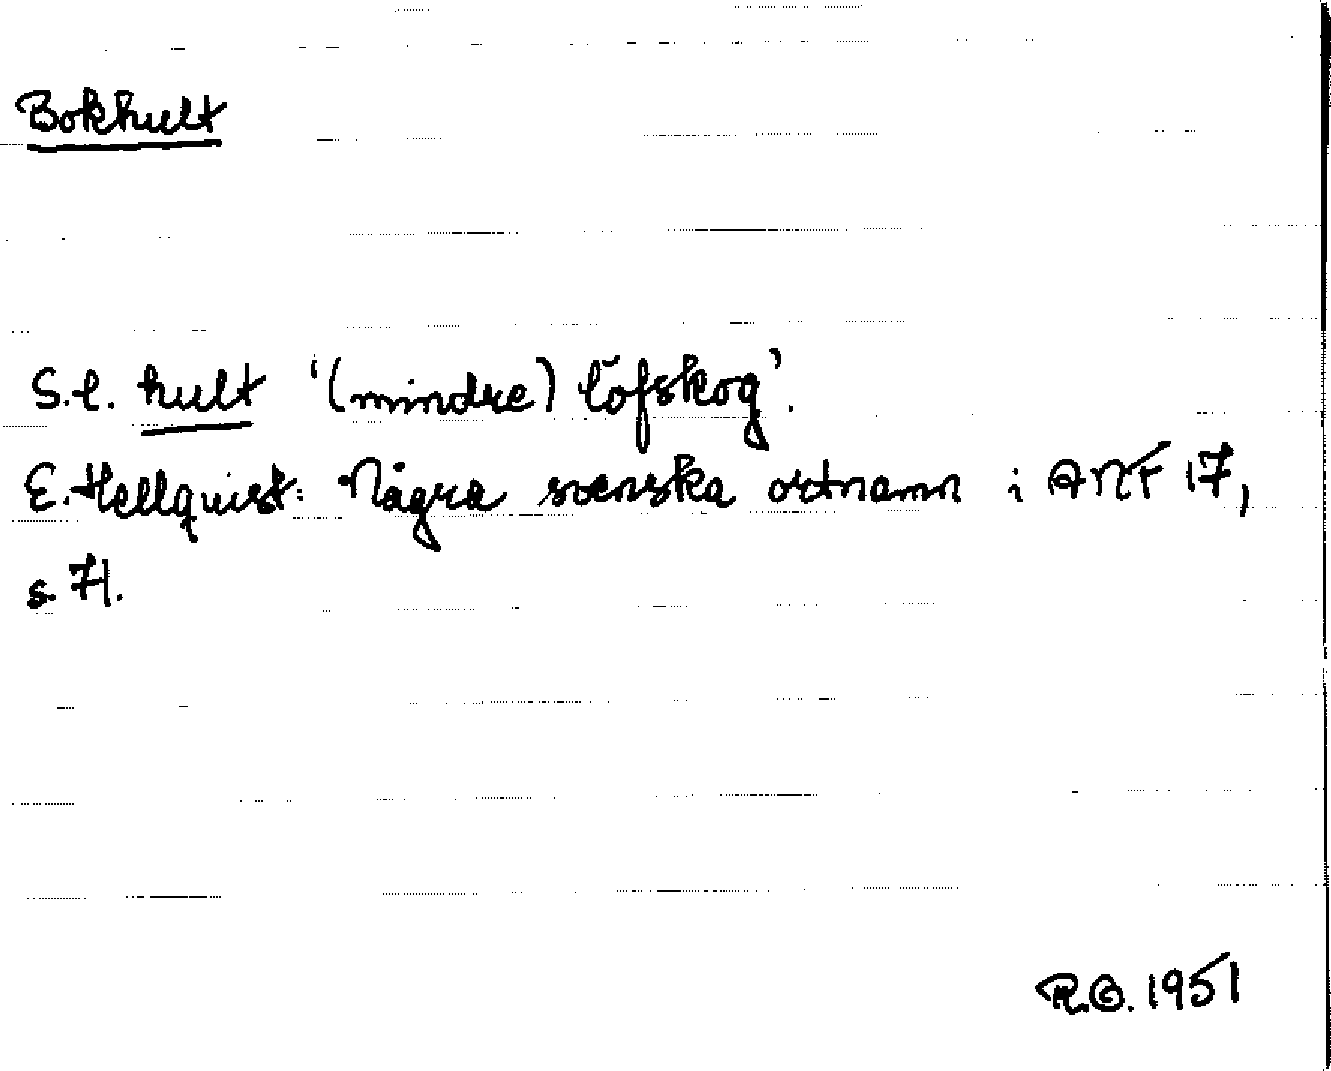 Bokhult
S.l. hult '(mindre) löfskog'.
E. Hellquist: Några svenska ortnamn i ANF 17,
s. 71.
R.O. 1951